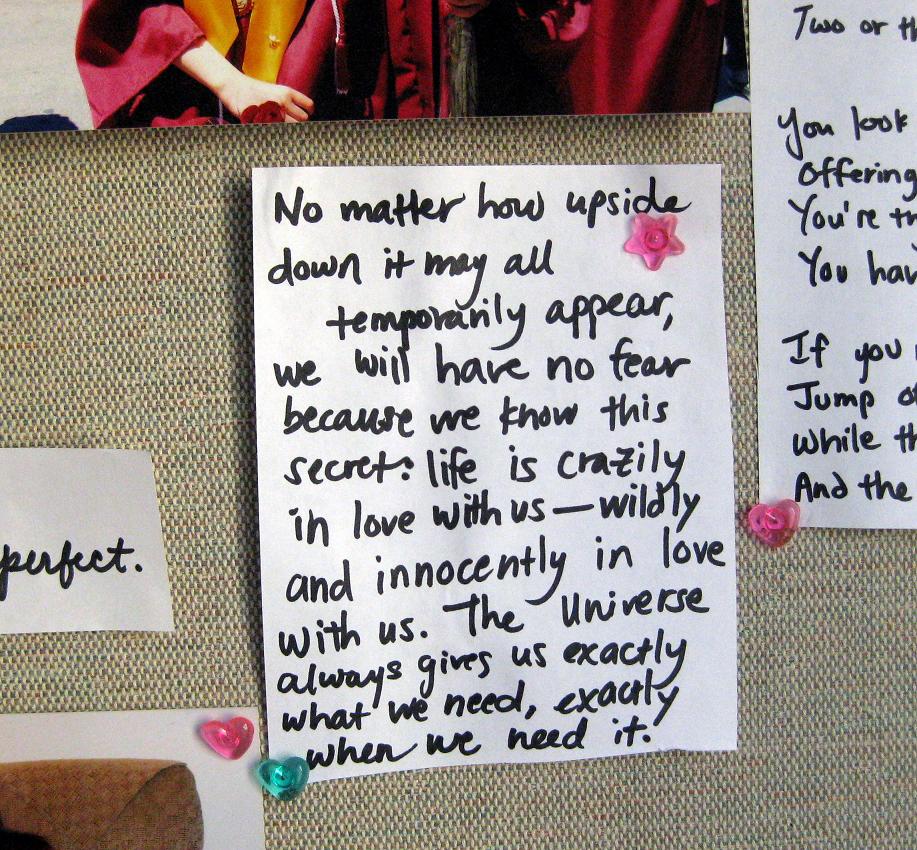 No matter how upside
down it may all
temporarily appear,
we will have no fear
because we know this
secret: life is crazily
in love with us — wildly
and innocently in love
with us. The Universe
always gives us exactly
what we need, exactly
when we need it.
perfect.
Two or th
You look
Offering
You're tr
You hav
If you
Jump o
While th
And the